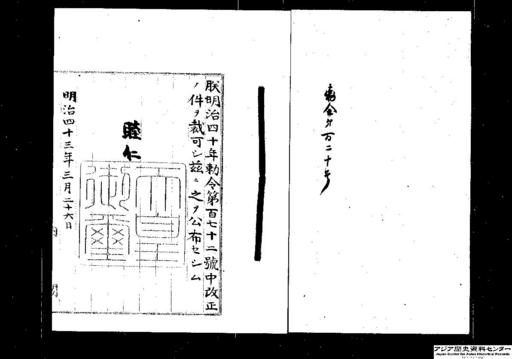 勅令第百二十号
朕明治四十年勅令第百七十二號中改正
ノ件ヲ裁可シ茲ニ之ヲ公布セシム
睦仁
天皇御璽
明治四十三年三月二十六日
内閣
アジア歴史資料センター
Japan Center for Asian Historical Records